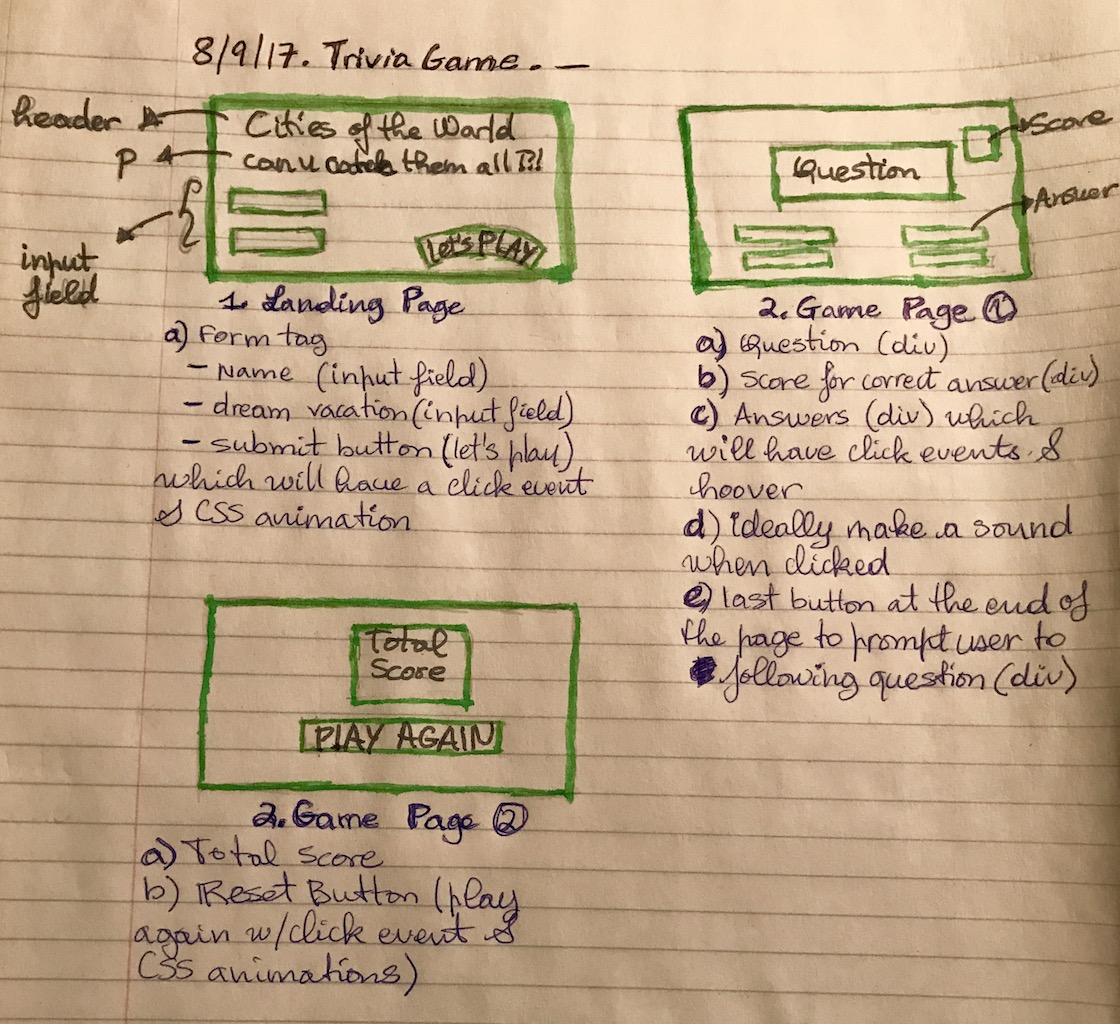 8/9/17. Trivia Game. —
header
p
input
field
Cities of the World
can u them all ?!!
Let's PLAY
1. Landing Page
a) Form tag
- Name (input field)
- dream vacation (input field)
- submit button (let's play)
which will have a click event
& CSS animation
Question
Score
Answer
2. Game Page ①
a) Question (div)
b) Score for correct answer (div)
c) Answers (div) which
will have click events &
hoover
d) ideally make a sound
when clicked
e) last button at the end of
the page to prompt user to
following question (div)
Total
Score
PLAY AGAIN
2. Game Page ②
a) Total Score
b) Reset Button (play
again w/click event &
CSS animations)